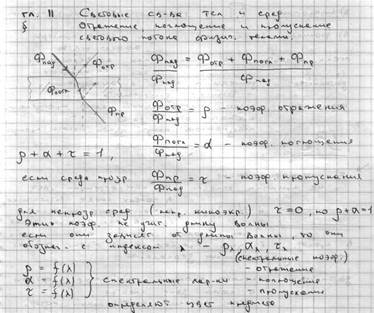 гл. II Световые св-ва тел и сред
§ Отражение поглощение и пропускание
светового потока физич. телами.
Фпад Фотр Фпогл Фпр
Фпад / Фпад = Фотр + Фпогл + Фпр / Фпад
Фотр / Фпад = ρ – коэф. отражения
Фпогл / Фпад = α – коэф. поглощения
ρ + α + τ = 1,
если среда прозр. Фпр / Фпад = τ – коэф. пропускания
для непрозр сред (напр. киноэкр.) τ = 0, но ρ + α = 1
Эти коэф. не учит. длину волны
если они зависят от длины волны, то они
обознач. с индексом λ – ρλ, αλ, τλ
(спектральные коэф.)
ρ = f(λ) – отражение
α = f(λ) } спектральные хар-ки – поглощение
τ = f(λ) – пропускание
определяют цвет предмета